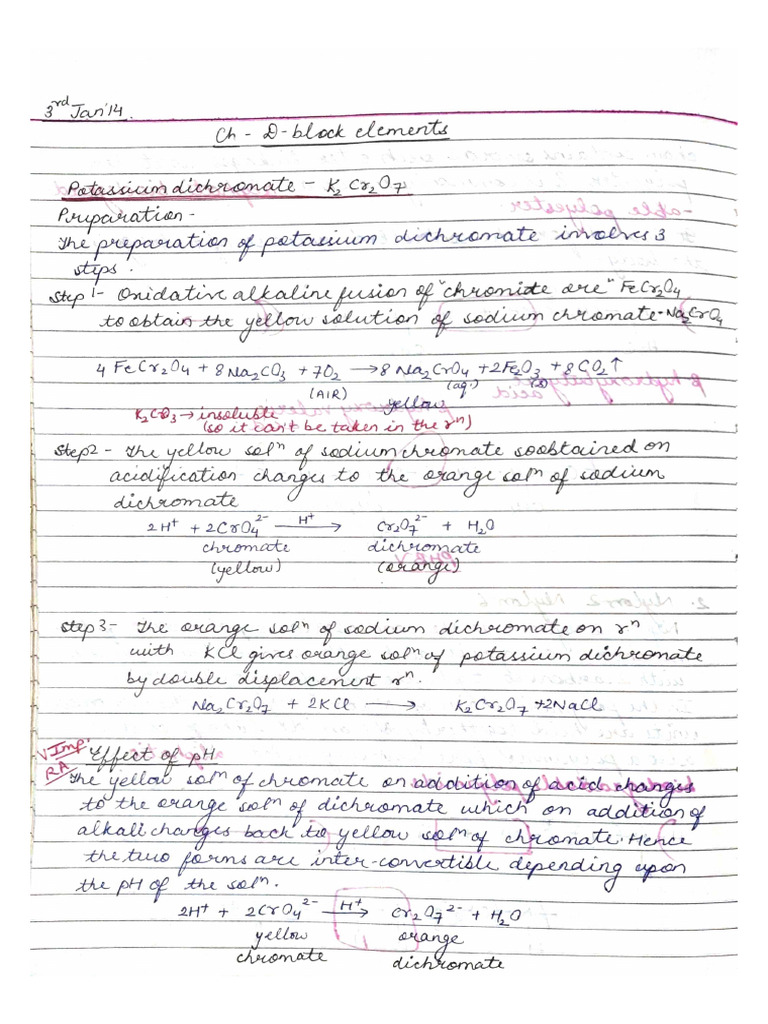 3rd Jan'14.
Ch - D-block elements
Potassium dichromate - K2Cr2O7
Preparation -
The preparation of potassium dichromate involves 3
steps.
Step 1- Oxidative alkaline fusion of "chromite ore" FeCr2O4
to obtain the yellow solution of sodium chromate - Na2CrO4
4 FeCr2O4 + 8 Na2CO3 + 7O2 → 8 Na2CrO4 + 2Fe2O3 + 8CO2↑
(AIR) (aq.) (s)
yellow
K2CO3 → insoluble
(so it can't be taken in the rn)
Step2 - The yellow soln of sodium chromate so obtained on
acidification changes to the orange soln of sodium
dichromate
2H+ + 2CrO4 2- H+ → Cr2O7 2- + H2O
chromate dichromate
(yellow) (orange)
Step 3- The orange soln of sodium dichromate on rn
with KCl gives orange soln of potassium dichromate
by double displacement rn.
Na2Cr2O7 + 2KCl → K2Cr2O7 + 2NaCl
V Imp. Effect of pH
RA The yellow soln of chromate on addition of acid changes
to the orange soln of dichromate which on addition of
alkali changes back to yellow soln of chromate. Hence
the two forms are inter-convertible depending upon
the pH of the soln.
2H+ + 2CrO4 2- H+ → Cr2O7 2- + H2O
yellow orange
chromate dichromate